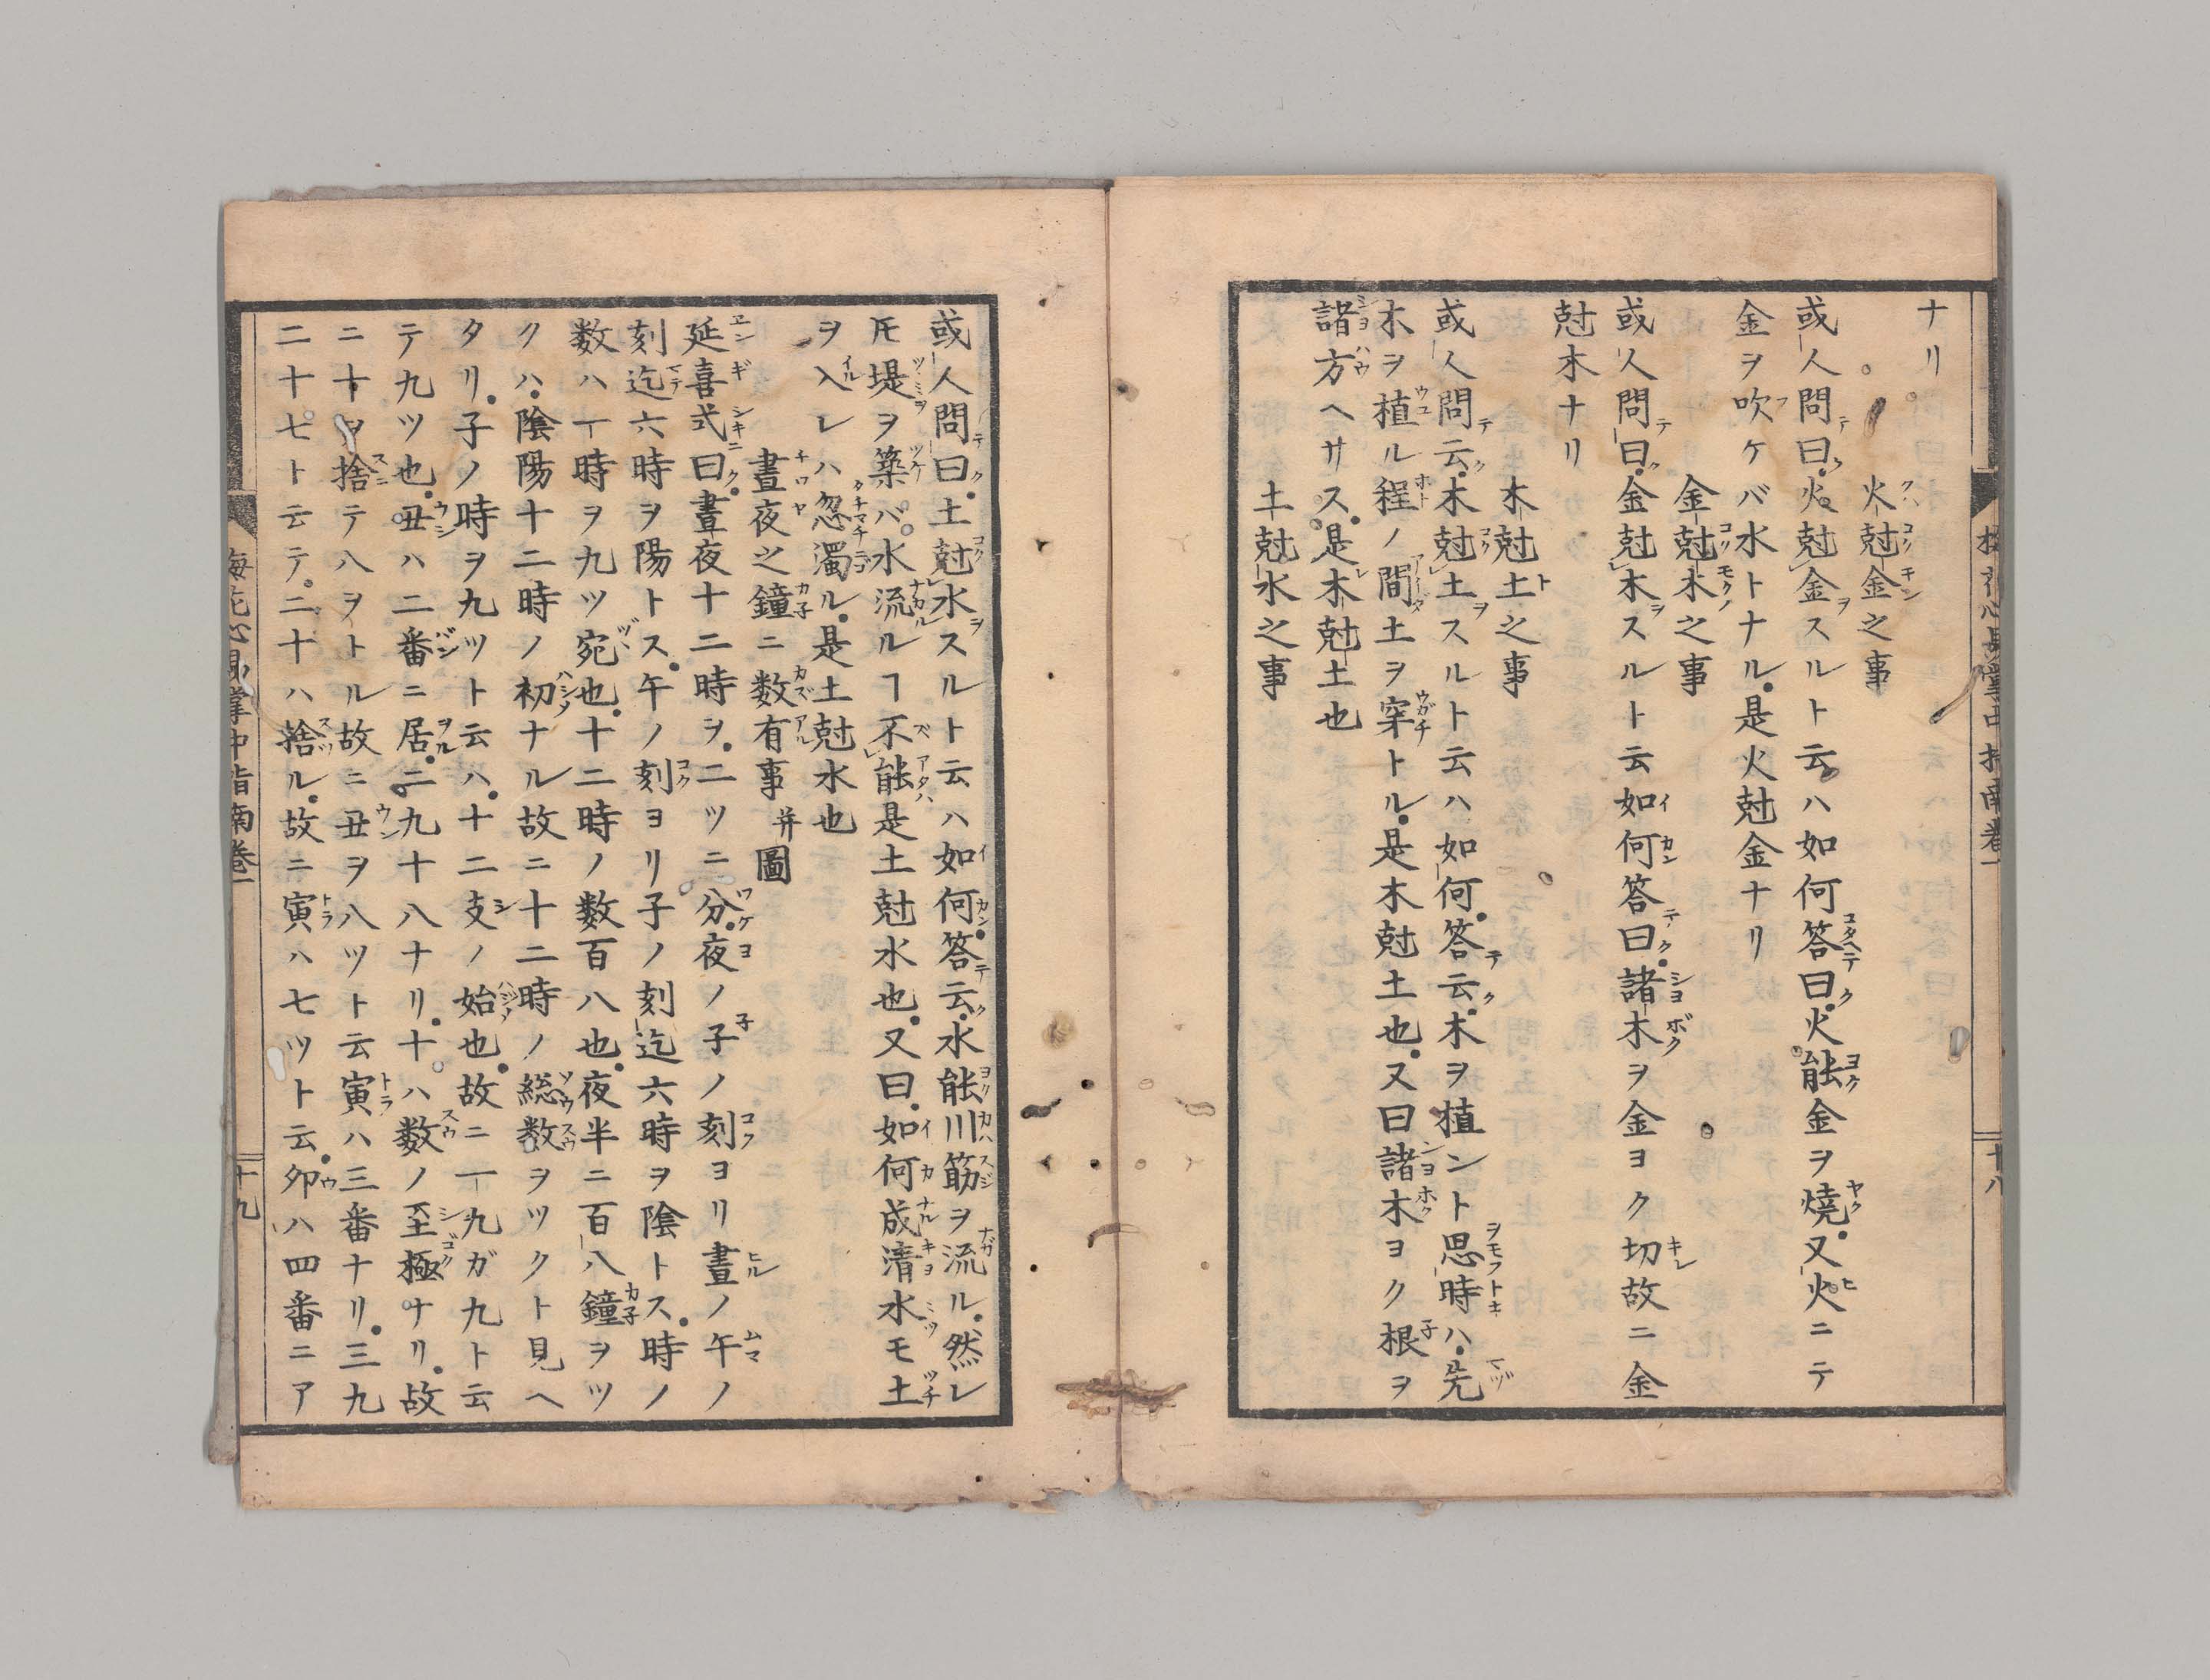 ナリ
火尅金之事
或人問曰火尅金スルト云ハ如何答曰火能金ヲ焼又火ニテ
金ヲ吹ケバ水トナル是火尅金ナリ
金尅木之事
或人問曰金尅木スルト云如何答曰諸木ヲ金ヨク切故ニ金
尅木ナリ
木尅土之事
或人問云木尅土スルト云ハ如何答云木ヲ植ント思時ハ先
木ヲ植ル程ノ間土ヲ穿トル是木尅土也又曰諸木ヨク根ヲ
諸方ヘサス是木尅土也
土尅水之事
十八
或人問曰土尅水スルト云ハ如何答云水能川筋ヲ流ル然レ
𪜈堤ヲ築バ水流ルヿ不能是土尅水也又曰如何成清水モ土
ヲ入レハ忽濁ル是土尅水也
晝夜之鐘ニ数有事并圖
延喜式曰晝夜十二時ヲ二ツニ分夜ノ子ノ刻ヨリ晝ノ午ノ
刻迄六時ヲ陽トス午ノ刻ヨリ子ノ刻迄六時ヲ陰トス時ノ
数ハ一時ヲ九ツ宛也十二時ノ数百八也夜半ニ百八鐘ヲツ
クハ陰陽十二時ノ初ナル故ニ十二時ノ総数ヲツクト見ヘ
タリ子ノ時ヲ九ツト云ハ十二支ノ始也故ニ一九ガ九ト云
テ九ツ也丑ハ二番ニ居二九十八ナリ十ハ数ノ至極ナリ故
ニ十ヲ捨テ八ヲトル故ニ丑ヲ八ツト云寅ハ三番ナリ三九
二十七ト云テ二十ハ捨ル故ニ寅ハ七ツト云卯ハ四番ニア
梅花心易掌中指南巻一
十九